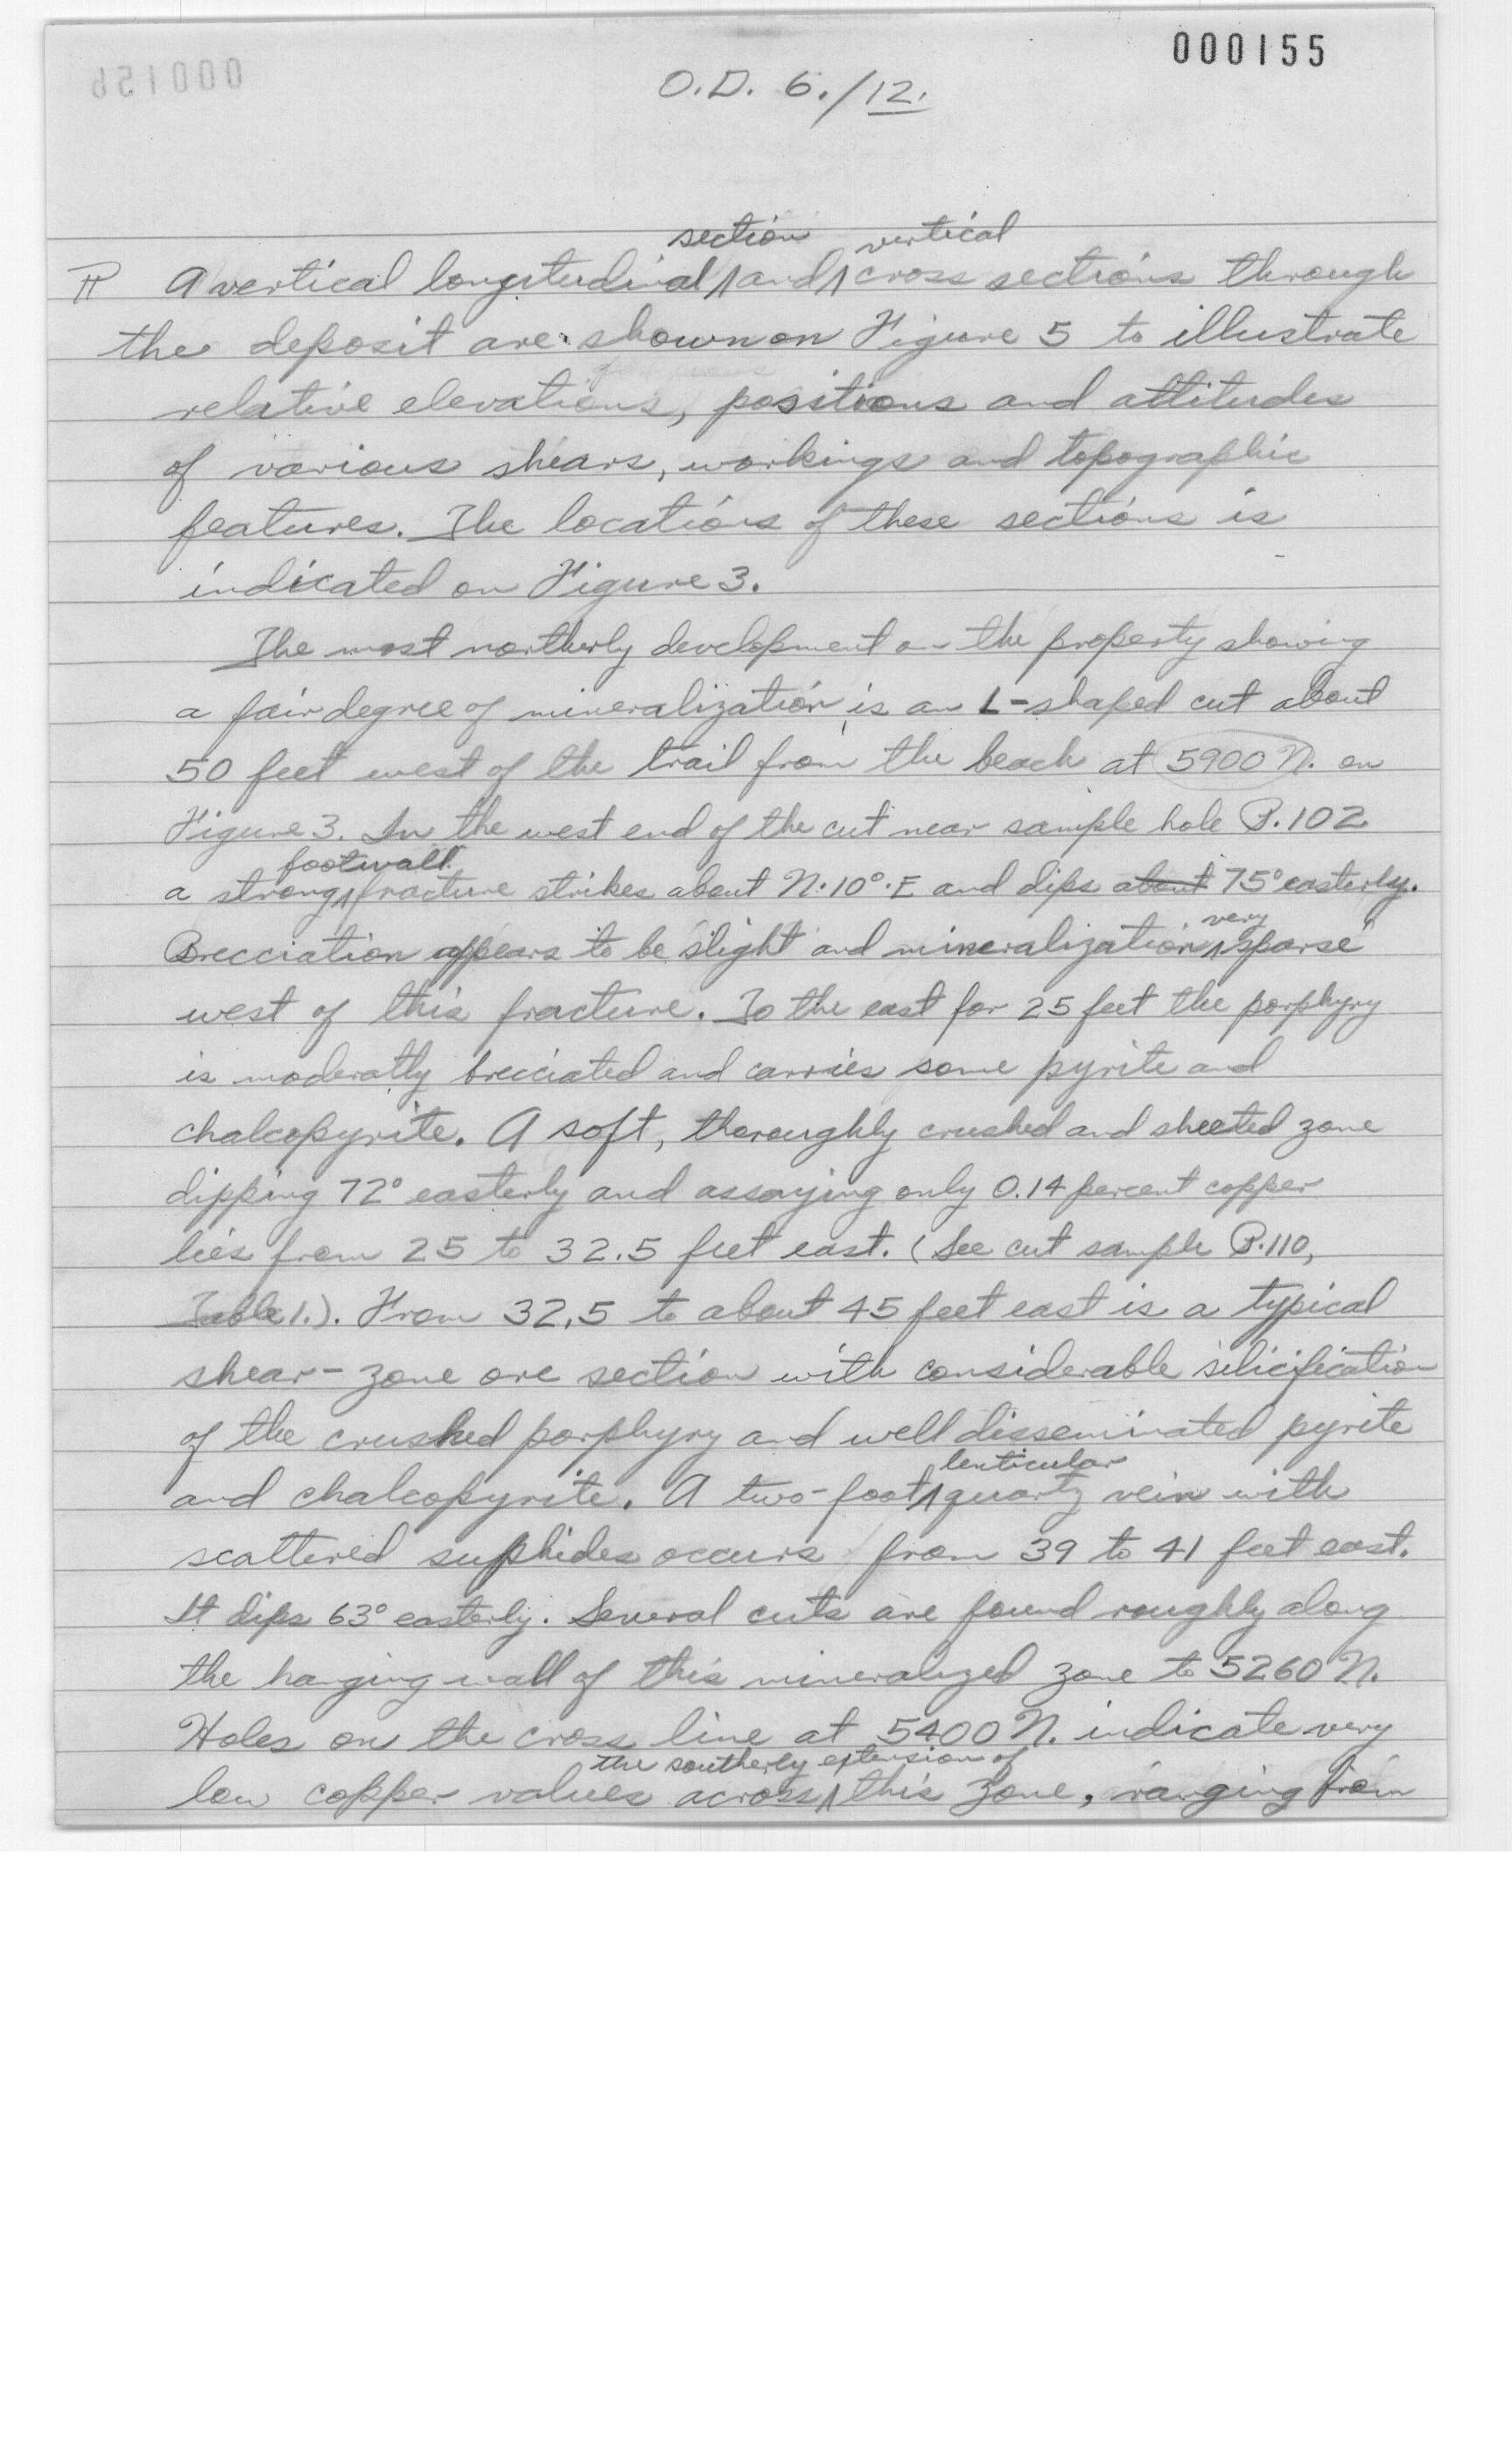 000155
O.D. 6./12.
section vertical
¶ A vertical longitudinal ∧ and ∧ cross sections through
the deposit are shown on Figure 5 to illustrate
relative elevations, positions and attitudes
of various shears, workings and topographic
features. The locations of these sections is
indicated on Figure 3.
The most northerly development on the property showing
a fair degree of mineralization is an L-shaped cut about
50 feet west of the trail from the beach at 5900 N. on
Figure 3. In the west end of the cut near sample hole P.102
footwall
a strong ∧ fracture strikes about N.10°.E and dips about 75° easterly.
very
Brecciation appears to be slight and mineralization ∧ sparse
west of this fracture. To the east for 25 feet the porphyry
is moderatly brecciated and carries some pyrite and
chalcopyrite. A soft, thoroughly crushed and sheeted zone
dipping 72° easterly and assaying only 0.14 percent copper
lies from 25 to 32.5 feet east. (See cut sample P.110,
Table 1.). From 32.5 to about 45 feet east is a typical
shear-zone ore section with considerable silicification
of the crushed porphyry and well disseminated pyrite
lenticular
and chalcopyrite. A two-foot ∧ quartz vein with
scattered suphides occurs from 39 to 41 feet east.
It dips 63° easterly. Several cuts are found roughly along
the hanging wall of this mineralized zone to 5260 N.
Holes on the cross line at 5400 N. indicate very
the southerly extension of
low copper values across ∧ this zone, ranging from